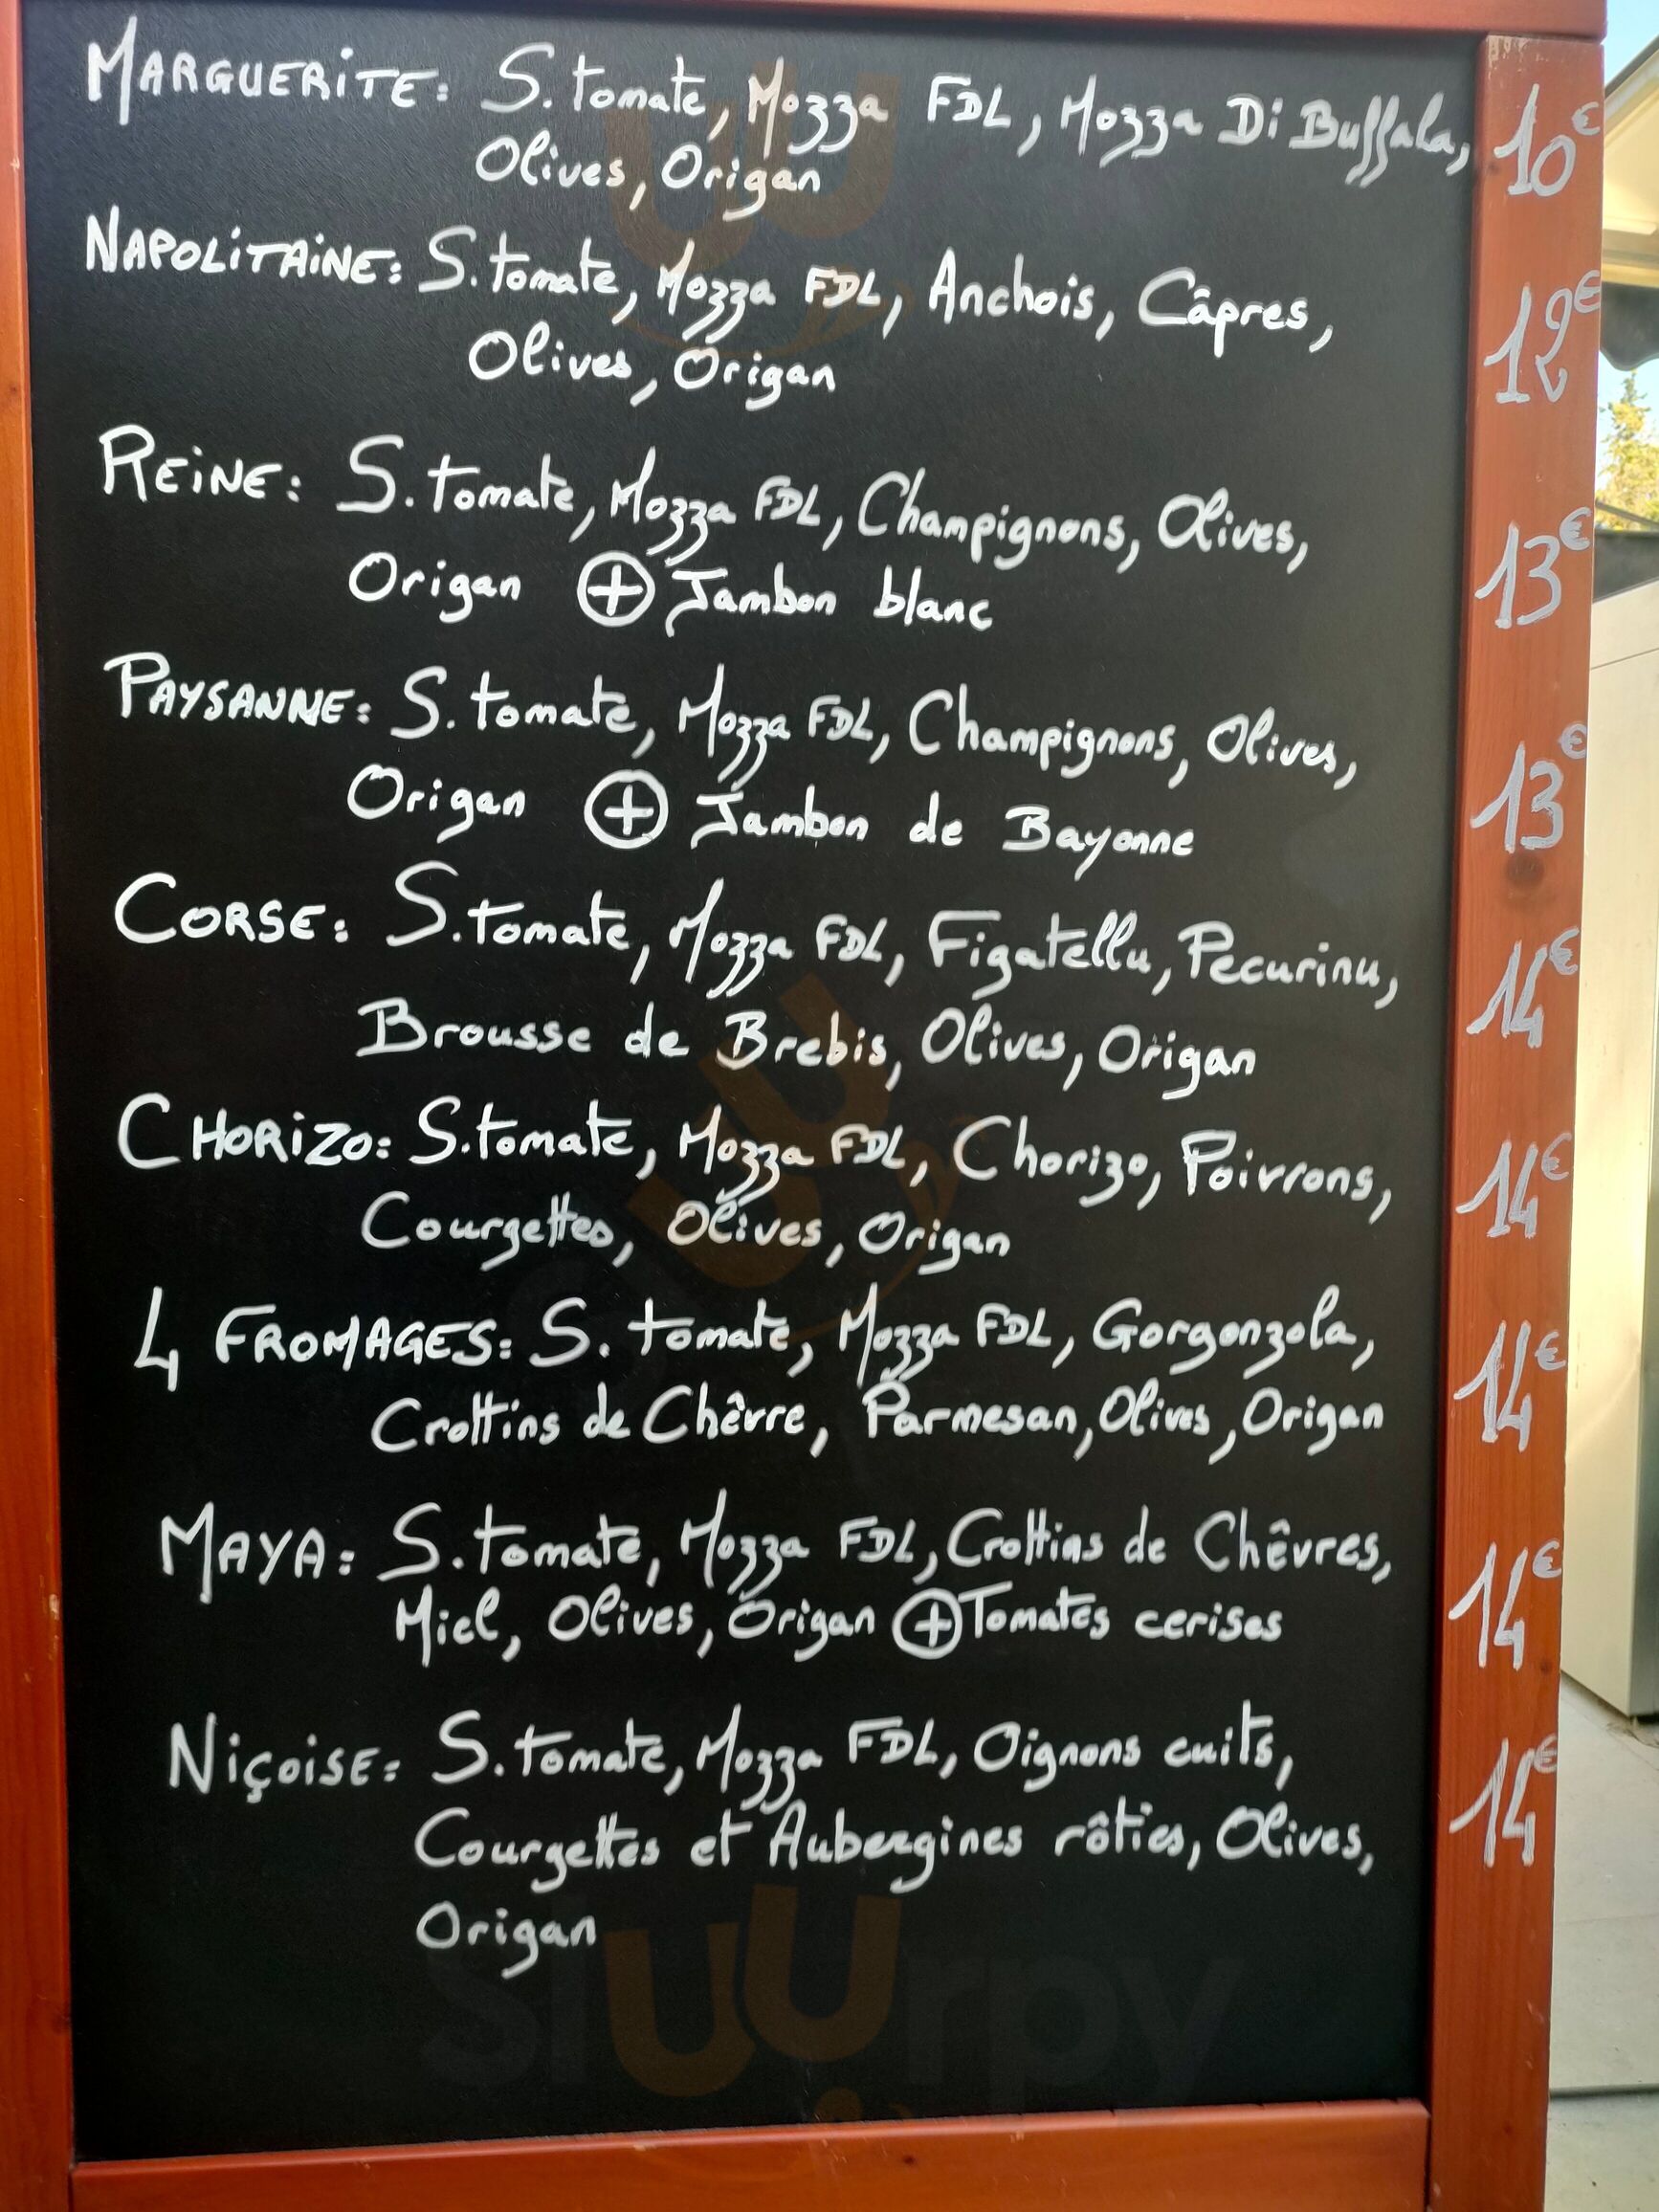 MARGUERITE: S. tomate, Mozza FDL, Mozza Di Buffala, 10€
Olives, Origan
NAPOLITAINE: S. tomate, Mozza FDL, Anchois, Câpres, 12€
Olives, Origan
REINE: S. tomate, Mozza FDL, Champignons, Olives, 13€
Origan ⊕ Jambon blanc
PAYSANNE: S. tomate, Mozza FDL, Champignons, Olives, 13€
Origan ⊕ Jambon de Bayonne
CORSE: S. tomate, Mozza FDL, Figatellu, Pecurinu, 14€
Brousse de Brebis, Olives, Origan
CHORIZO: S. tomate, Mozza FDL, Chorizo, Poivrons, 14€
Courgettes, Olives, Origan
4 FROMAGES: S. tomate, Mozza FDL, Gorgonzola, 14€
Crottins de Chêvre, Parmesan, Olives, Origan
MAYA: S. tomate, Mozza FDL, Crottins de Chêvres, 14€
Miel, Olives, Origan ⊕ Tomates cerises
NIÇOISE: S. tomate, Mozza FDL, Oignons cuits, 14€
Courgettes et Aubergines rôties, Olives,
Origan
sluurpy